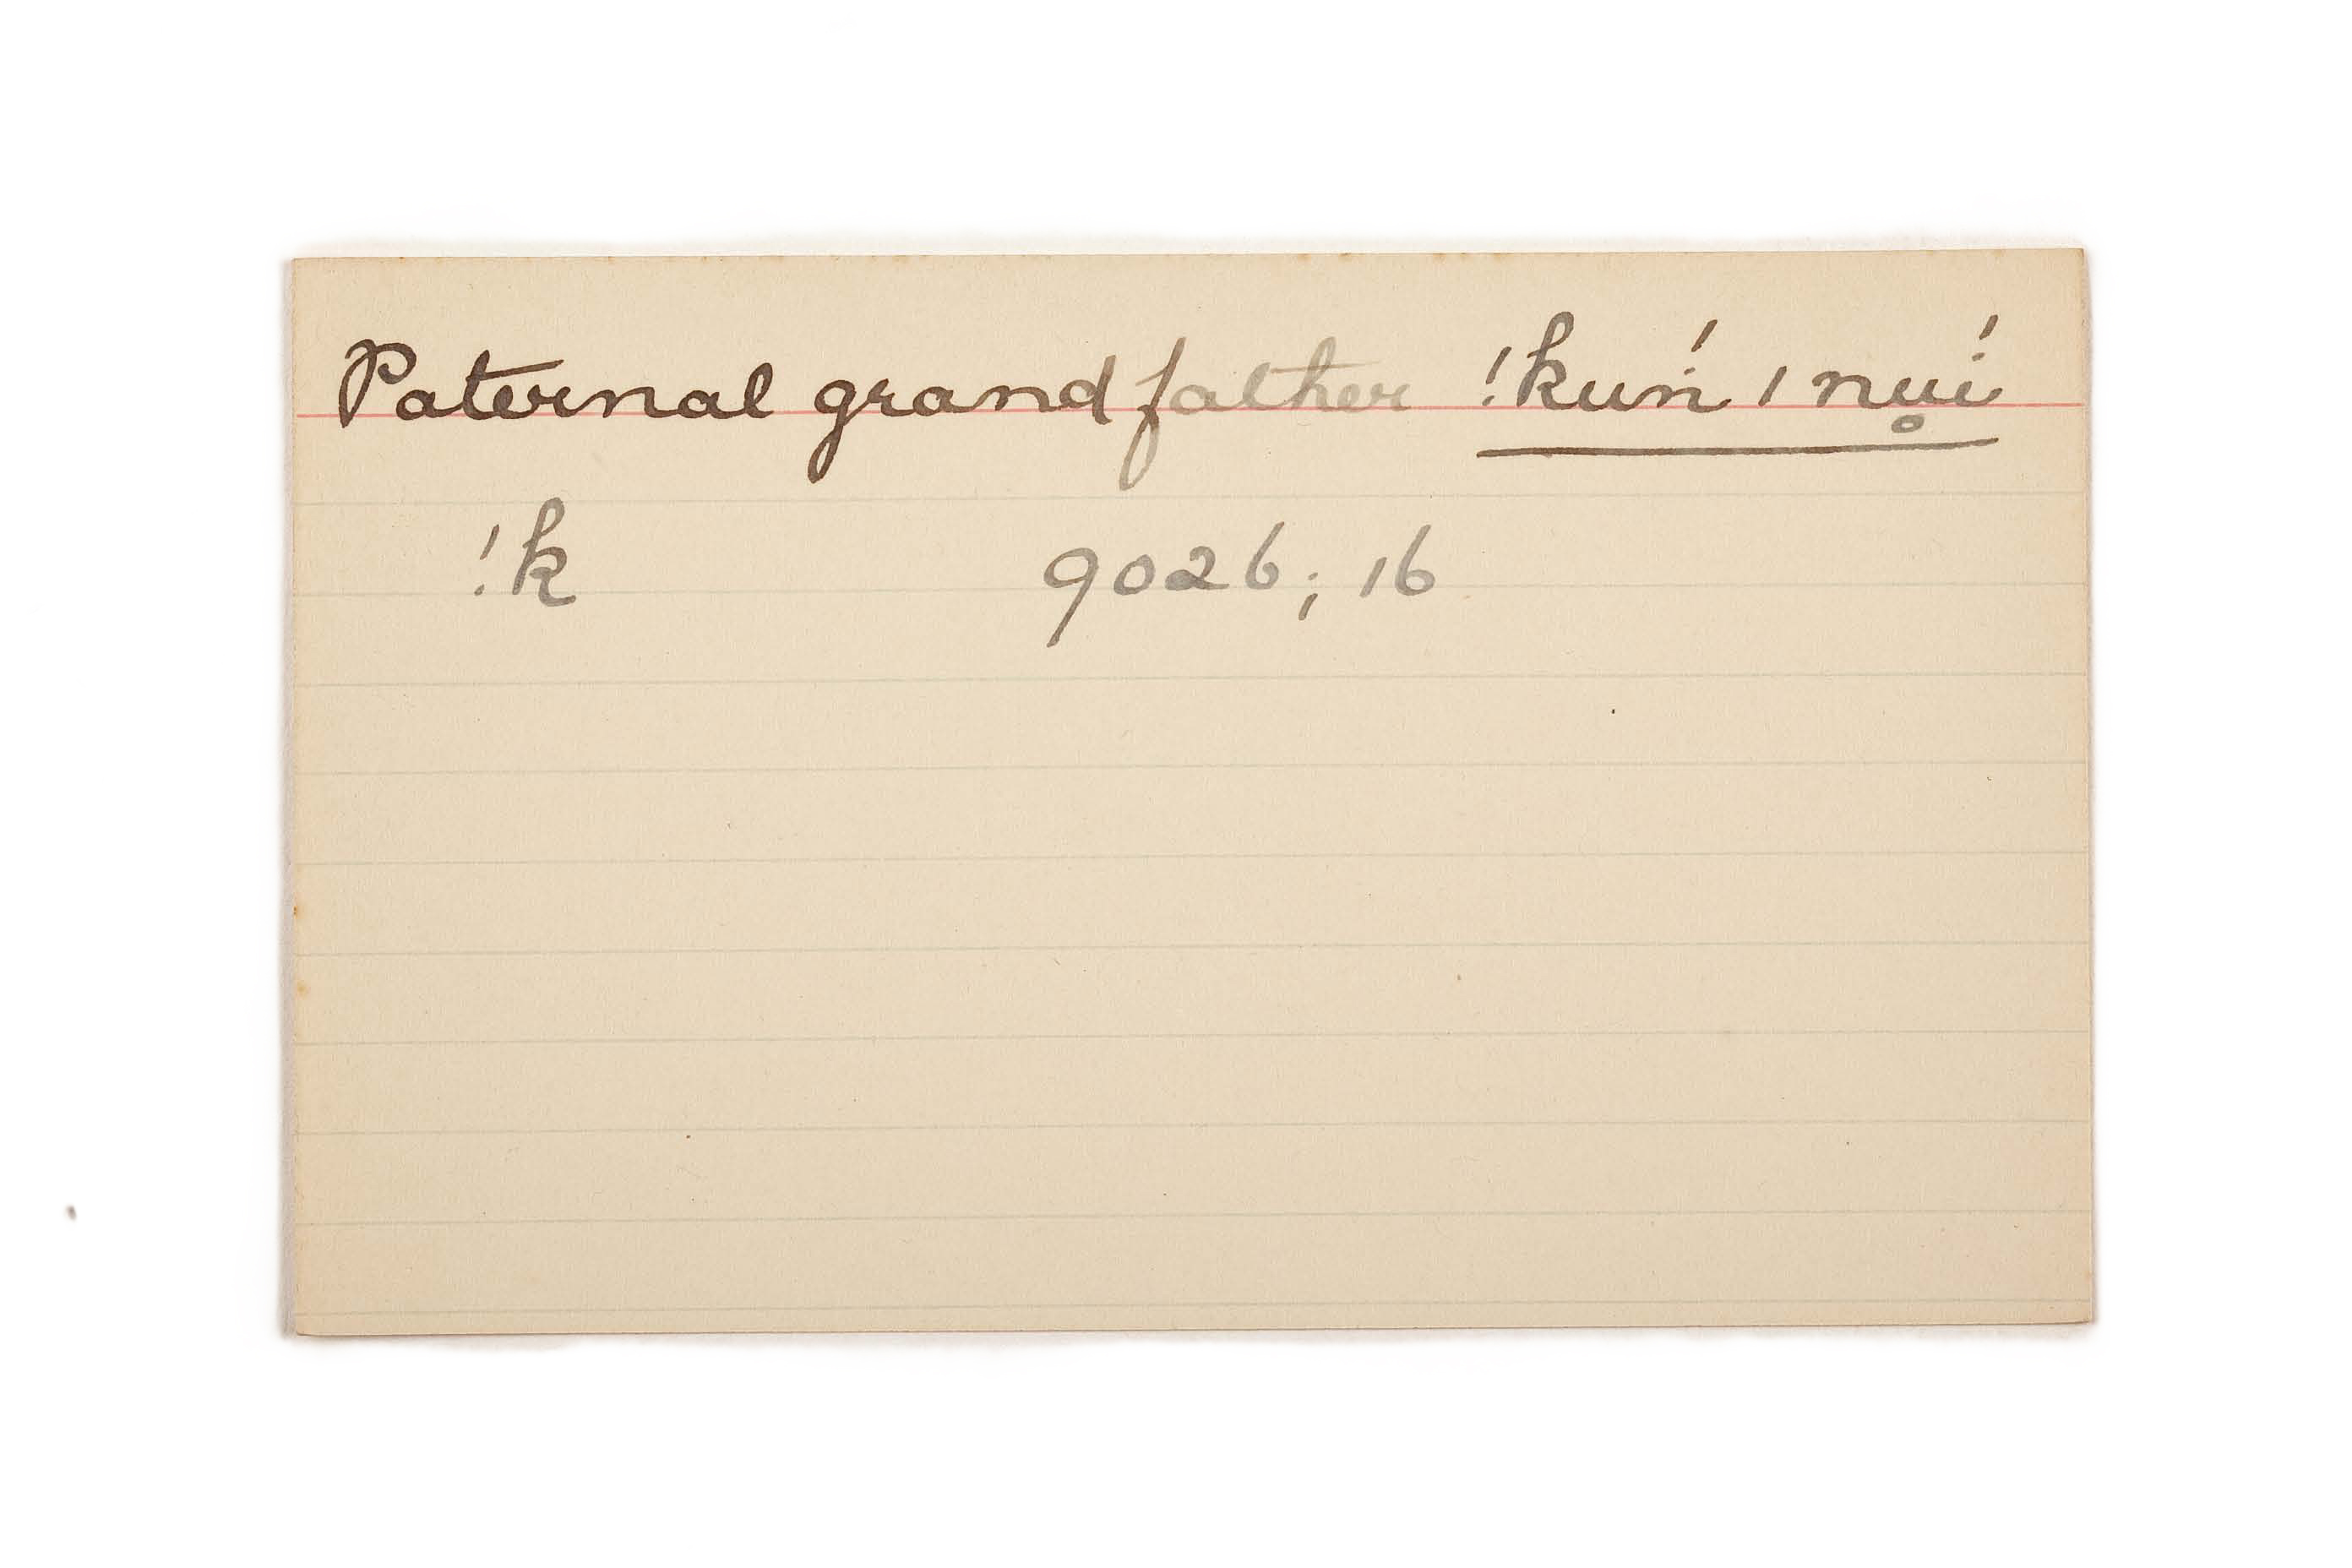 Paternal grandfather !kuṅ́ ǀ nu̥í
!k 9026; 16